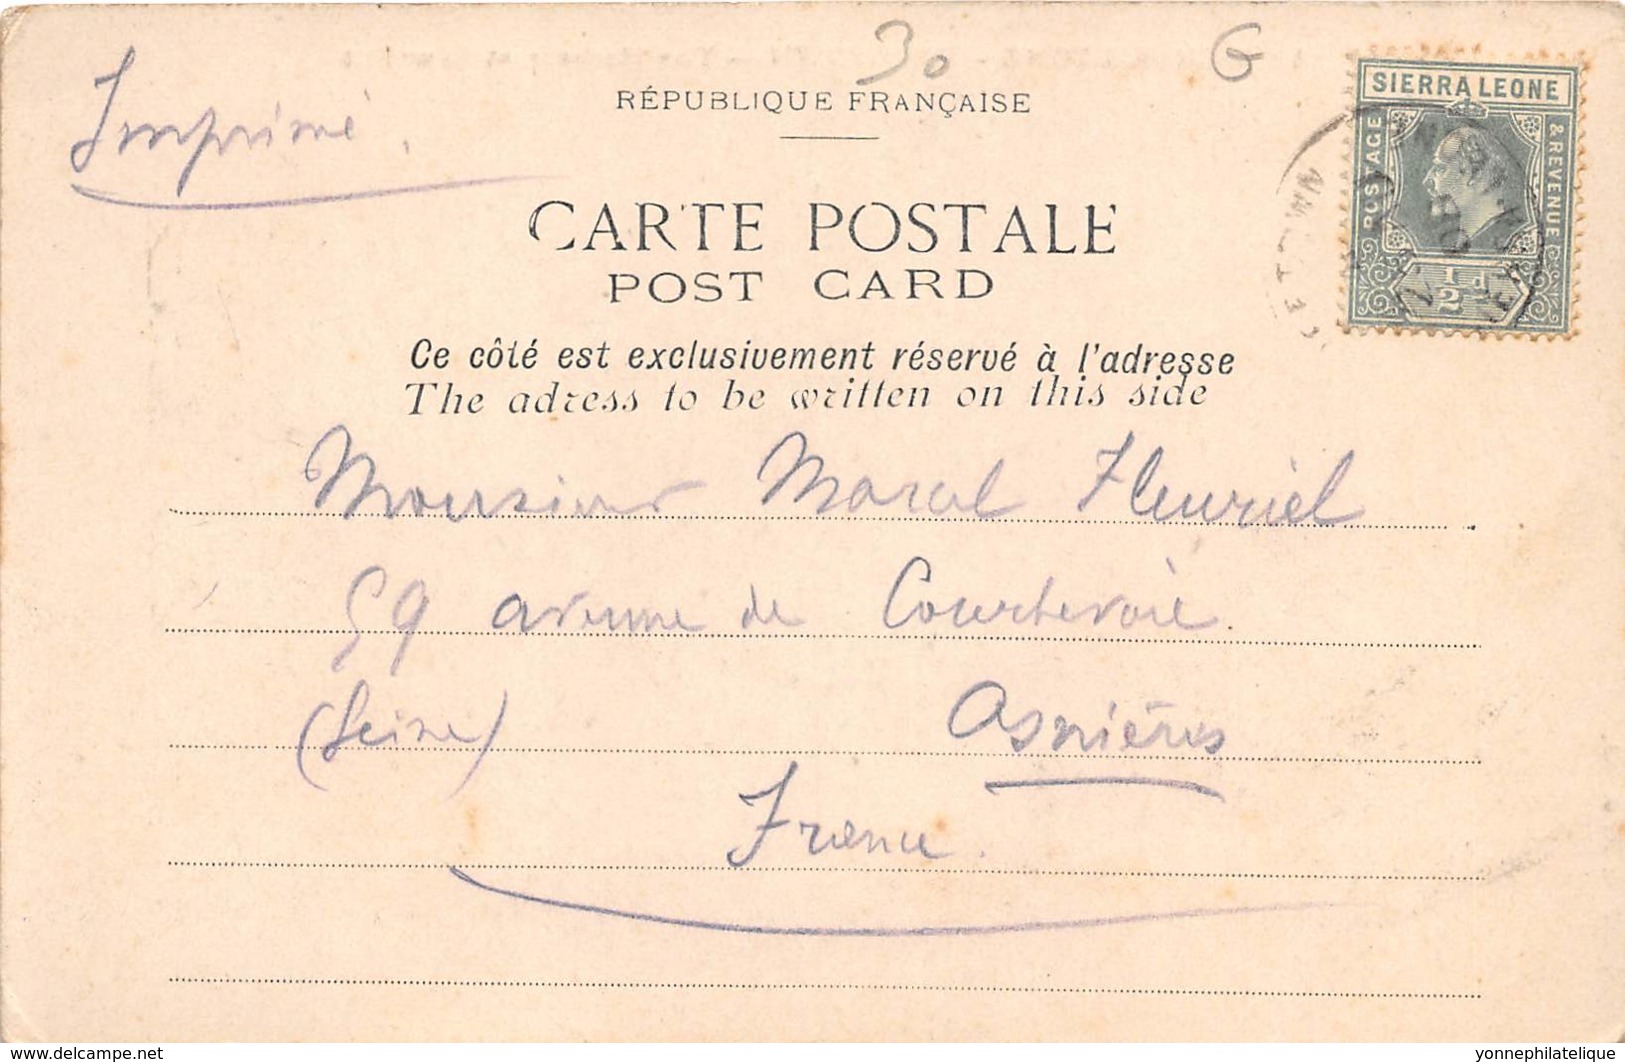 30 G
Imprimé.
RÉPUBLIQUE FRANÇAISE
SIERRA LEONE
POSTAGE & REVENUE
½d
CARTE POSTALE
POST CARD
Ce côté est exclusivement réservé à l'adresse
The adress to be written on this side
Monsieur Marcel Fleuriel
59 avenue de Courbevoie.
(Seine) Asnières
France.
www.delcampe.net
yonnephilatelique